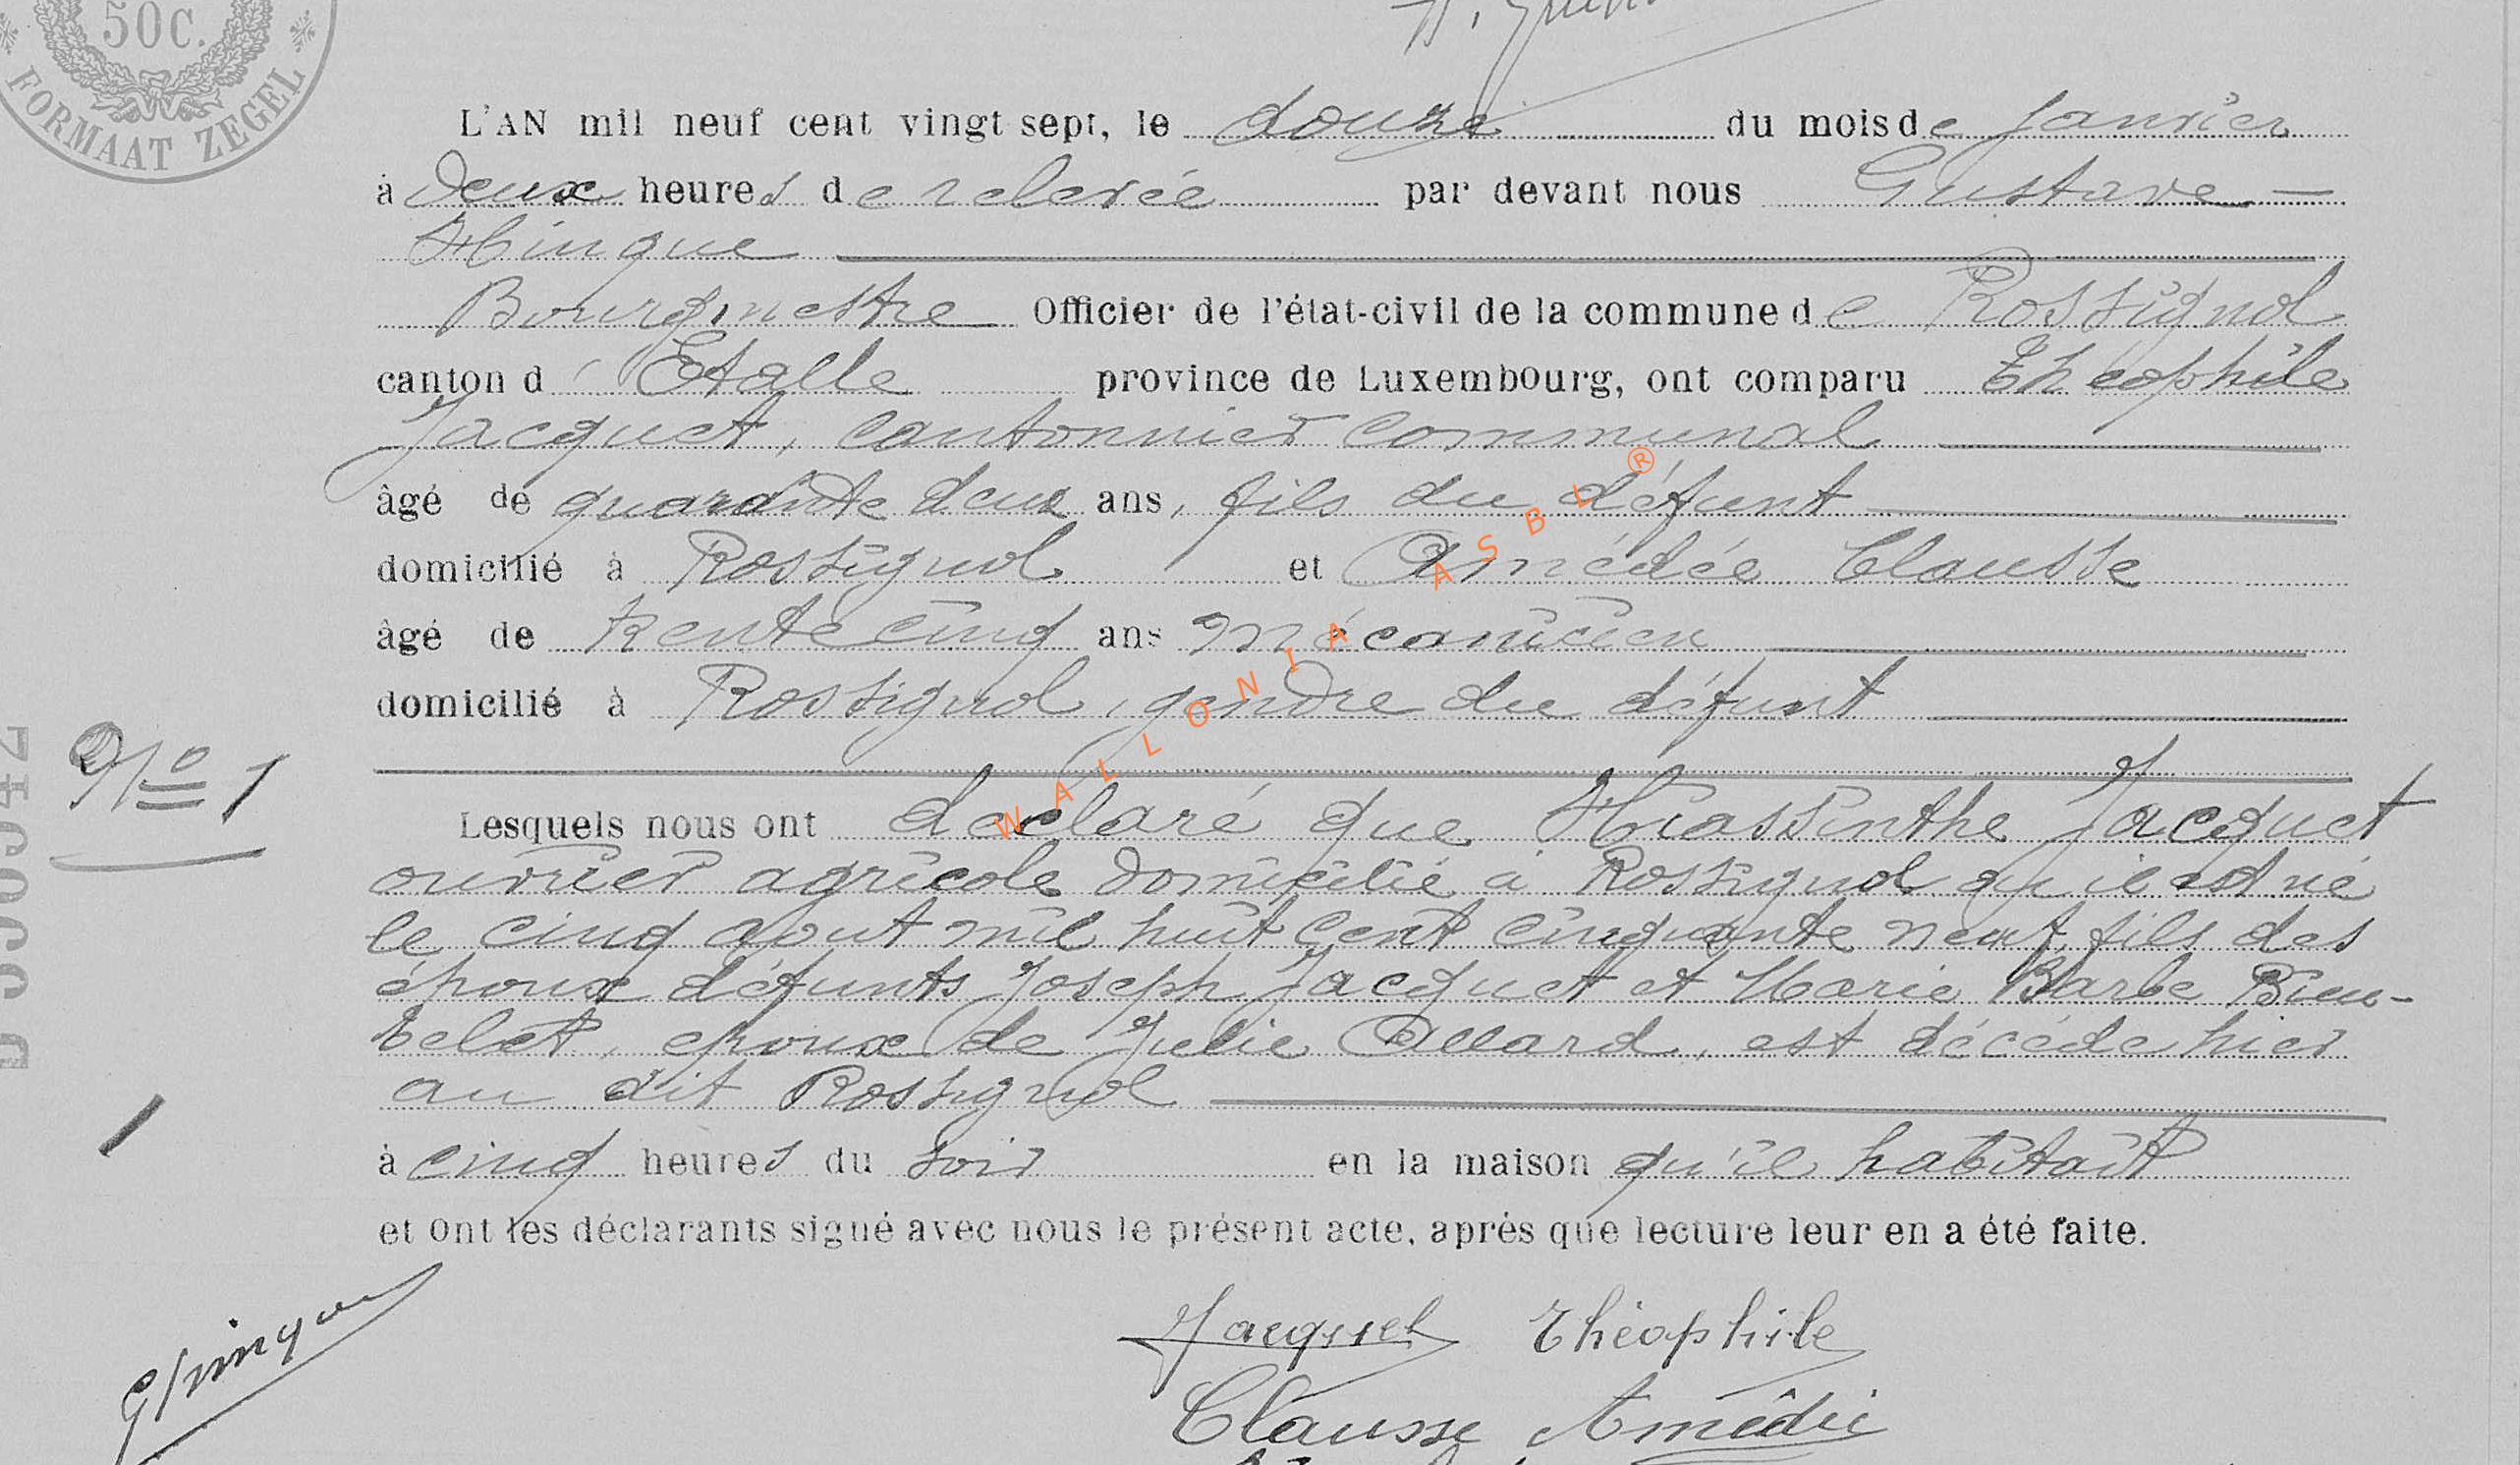 50C.
FORMAAT ZEGEL
L'AN mil neuf cent vingt sept, le douze du mois de Janvier
à deux heures de relevée par devant nous Gustave
Hinque
Bourgmestre Officier de l'état-civil de la commune de Rossignol
canton d'Etalle province de Luxembourg, ont comparu Théophile
Jacquet, cantonnier communal
âgé de quarante deux ans, fils du défunt
domicilié à Rossignol et Amédée Clausse
âgé de trente cinq ans mécanicien
domicilié à Rossignol, gendre du défunt
No 1
Lesquels nous ont déclaré que Hiassinthe Jacquet
ouvrier agricole domicilié à Rossignol où il est né
le cinq aout mil huit cent cinquante neuf, fils des
époux défunts Joseph Jacquet et Marie Barbe
époux de Julie Allard, est décédé hier
au dit Rossignol
à cinq heures du soir en la maison qu'il habitait
et ont les déclarants signé avec nous le présent acte, après que lecture leur en a été faite.
GHinque
Jacquet Théophile
Clausse Amédée
WALLONIA ASBL ®